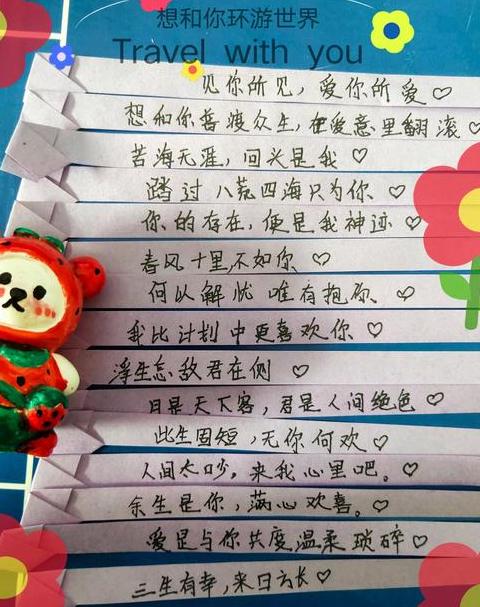 想和你环游世界
Travel with you
见你所见，爱你所爱♡
想和你普渡众生，在爱意里翻滚♡
苦海无涯，回头是我♡
踏过八荒四海只为你♡
你的存在，便是我神迹♡
春风十里，不如你♡
何以解忧 唯有抱你♡
我比计划中更喜欢你♡
浮生怎敌君在侧♡
月是天下客，君是人间绝色♡
此生固短，无你何欢♡
人间太吵，来我心里吧。♡
余生是你，满心欢喜。♡
爱是与你共度温柔琐碎♡
三生有幸，来日方长♡